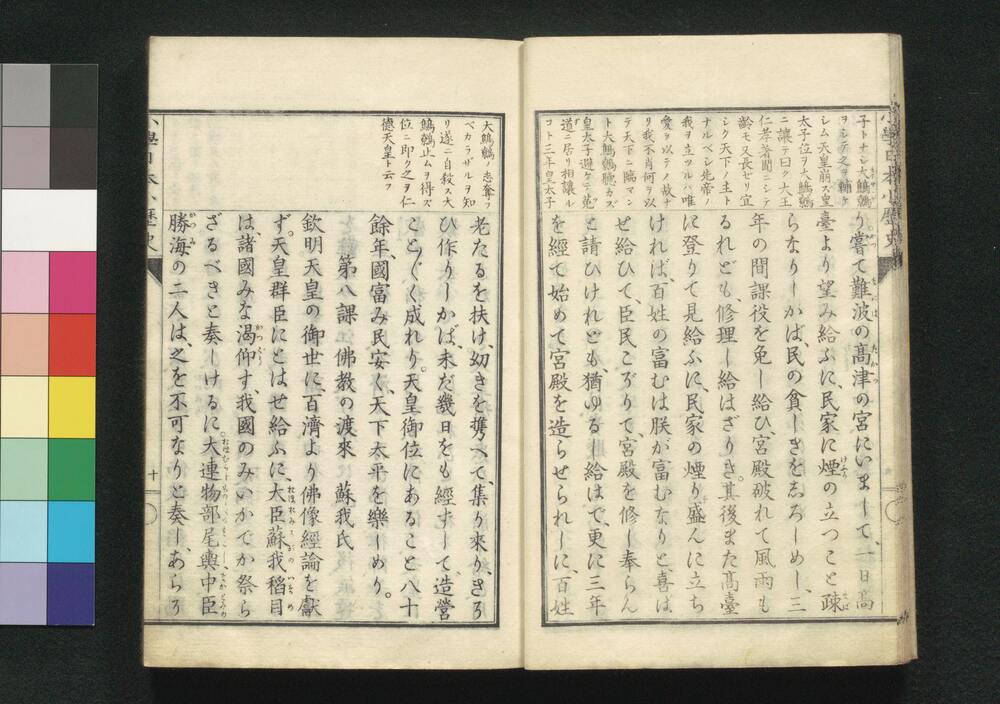 子トナシ大鷦鷯
ヲシテ之ヲ輔ケ
シム天皇崩ズ皇
太子位ヲ大鷦鷯
ニ讓テ曰ク大王
仁孝著聞ニシテ
齡モ又長セリ宜
シク天下ノ主ト
ナルベシ先帝ノ
我ヲ立ツルハ唯
愛ヲ以テノ故ナ
リ我不肖何ヲ以
テ天下ニ臨マン
ト大鷦鷯聽カズ
皇太子避ケテ菟
道ニ居リ相讓ル
コト三年皇太子
り嘗て難波の髙津の宮にいまして、一日髙
臺より望み給ふに、民家に煙の立つこと疎
らなりしかば、民の貧しきを志ろしめし、三
年の間課役を免し給ひ、宮殿破れて風雨も
るれども、修理し給はざりき。其後また髙臺
に登りて見給ふに、民家の煙り盛んに立ち
ければ、百姓の富むは朕が富むなりと、喜ば
せ給ひて、臣民こぞりて、宮殿を修し奉らん
と請ひけれども、猶ゆるし給はで、更に三年
を經て始めて宮殿を造らせられしに、百姓
小學日本小歷史
大鷦鷯ノ志奪フ
ベカラザルヲ知
リ遂ニ自殺ス大
鷦鷯止ムヲ得ズ
位ニ即ク之ヲ仁
德天皇ト云フ
老たるを扶け、幼きを携へて、集り來り、きそ
ひ作りしかば、未だ幾日をも經ずして、造營
ことごとく成れり。天皇御位にあること八十
餘年、國富み民安く、天下太平を樂しめり。
第八課 佛教の渡來 蘇我氏
欽明天皇の御世に、百濟より佛像經論を獻
ず。天皇群臣にとはせ給ふに、大臣蘇我稻目
は、諸國みな渴仰す、我國のみいかでか祭ら
ざるべきと奏しけるに。大連物部尾輿中臣
勝海の二人は、之を不可なりと奏し、あらそ
小學日本小歷史
十